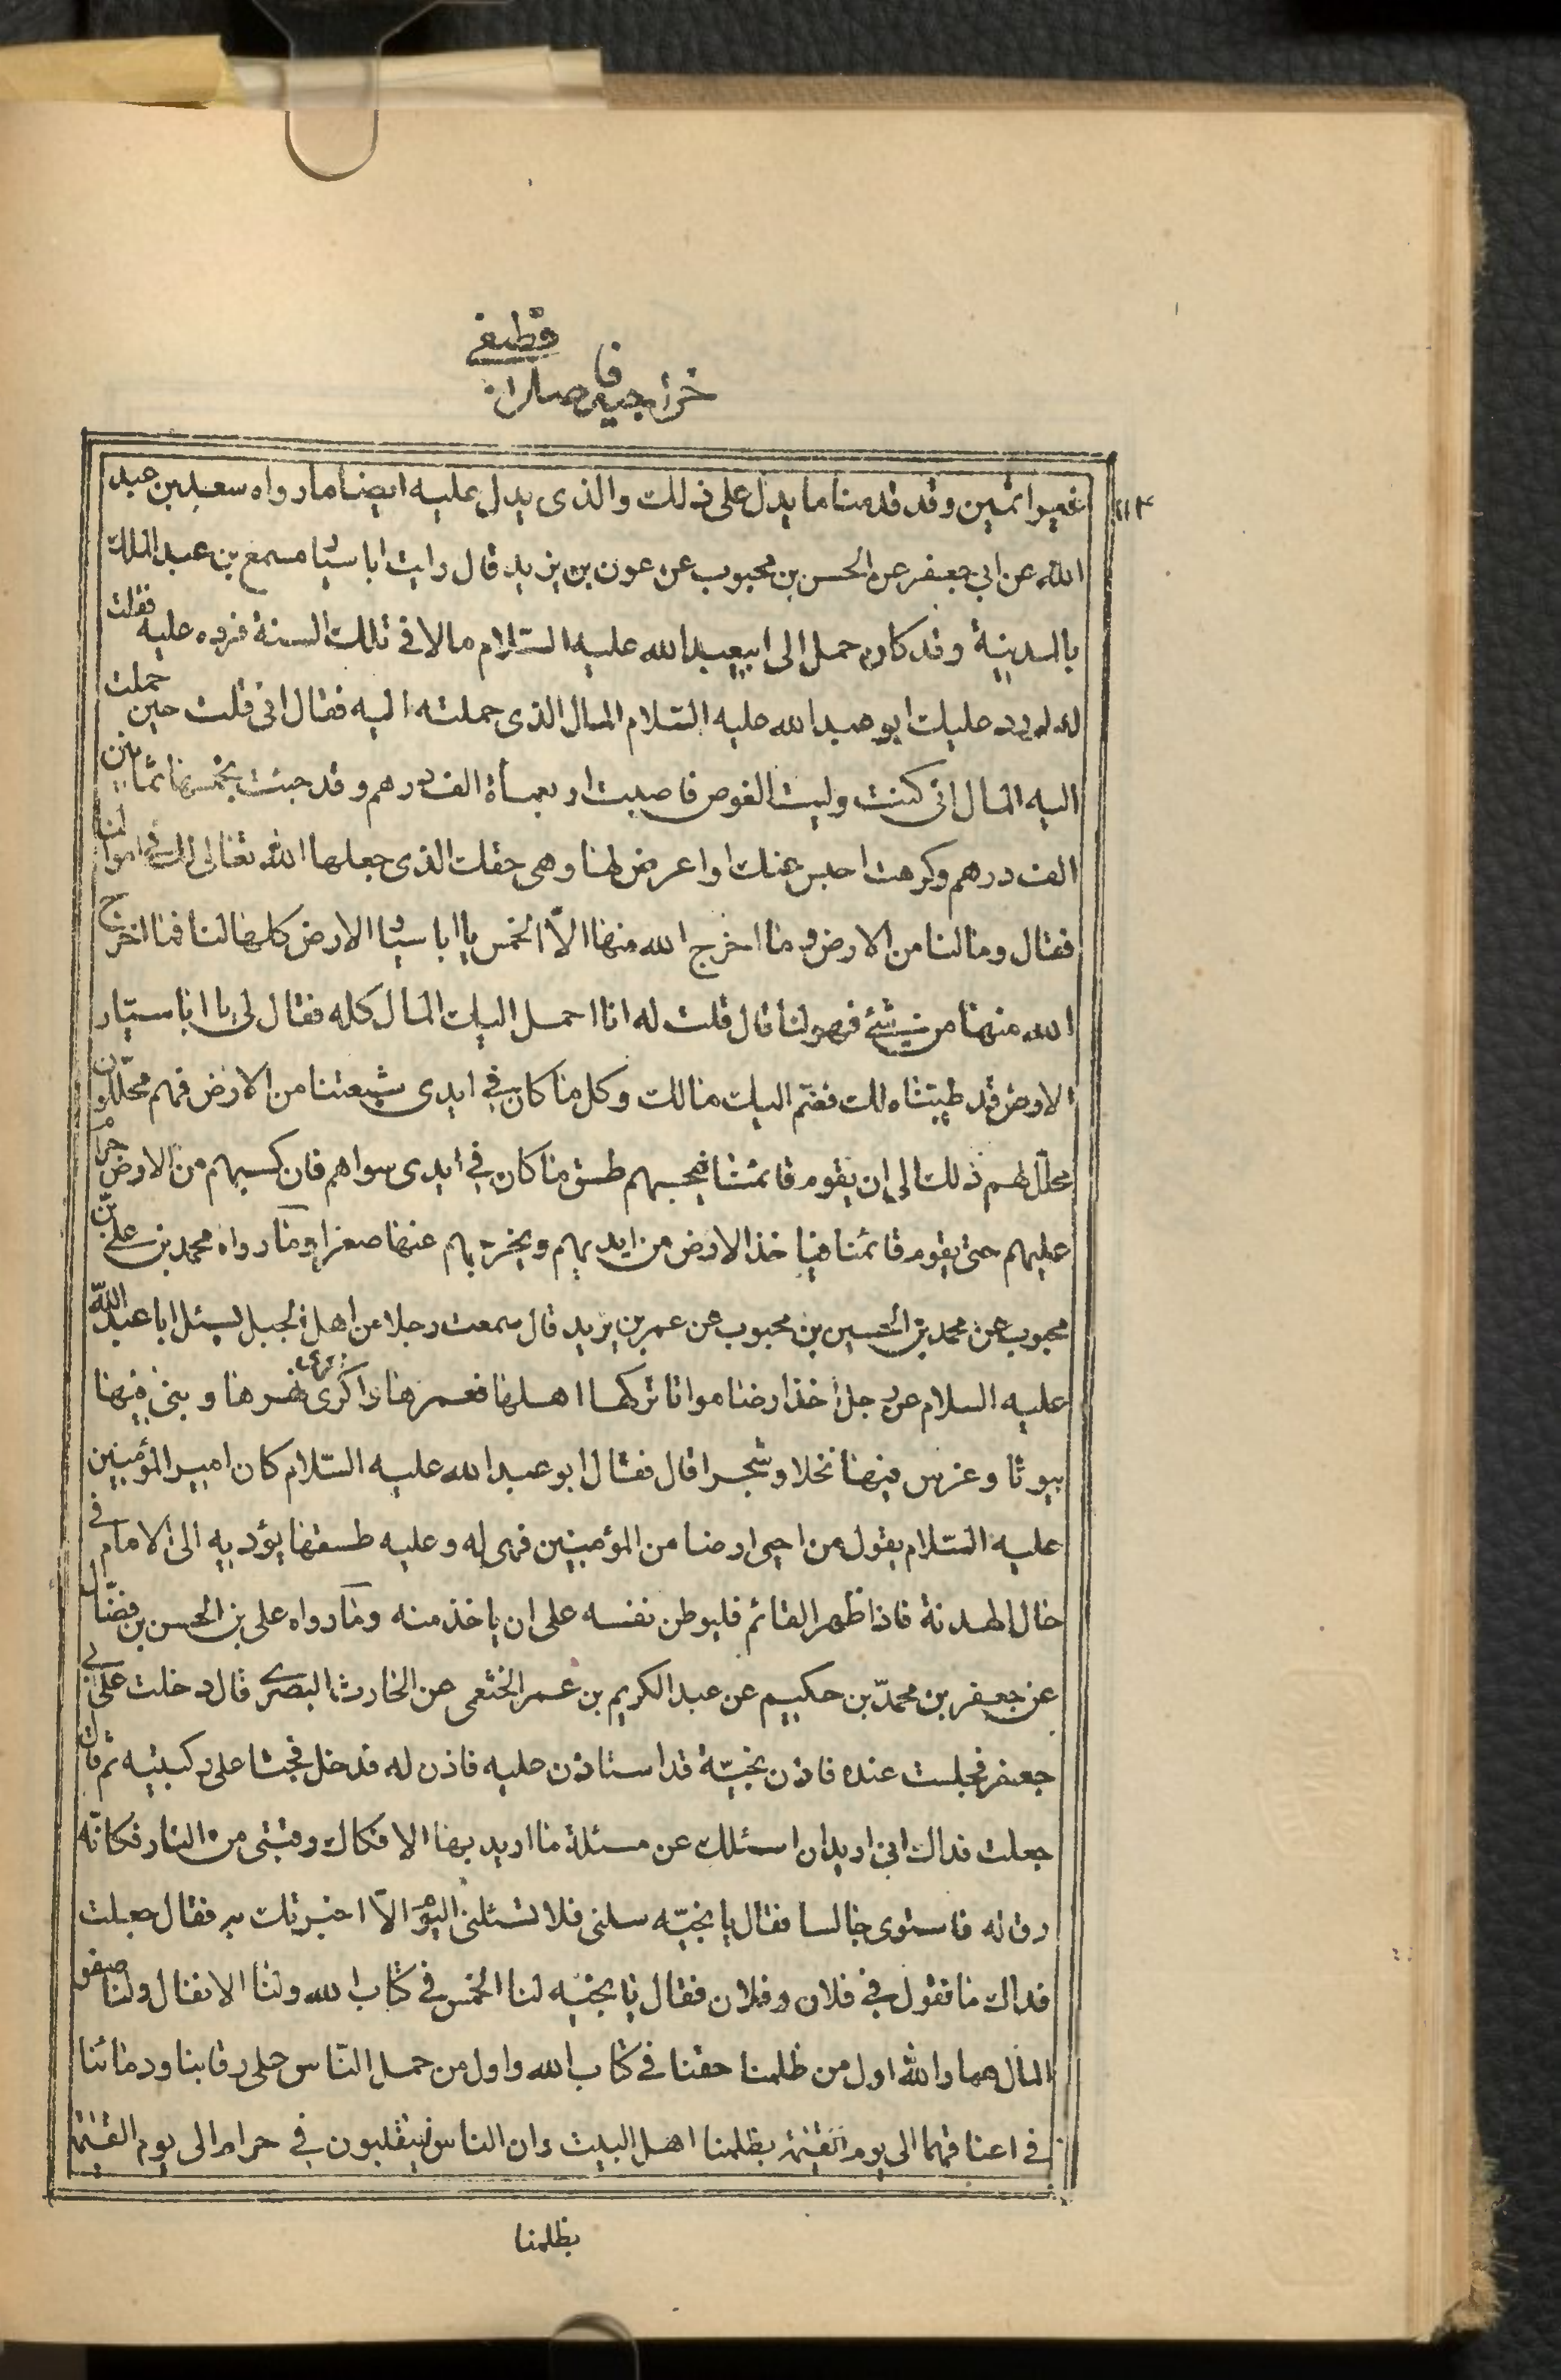 قطيفي
خراجية فاضل
١١٤
غير اثمين وقد قدمنا ما يدل على ذلك والذى يدل عليه ايضا ما رواه سعد بن عبد
الله عن ابي جعفر عن الحسن بن محبوب عن عون بن يزيد قال رايت ابا سيار مسمع بن عبد الملك
بالمدينة وقد كان حمل الى ابيعبد الله عليه السلام مالا في تلك السنة فرده عليه فقلت
له لم رد عليك ابو عبد الله عليه السلام المال الذى حملته اليه فقال انى قلت حين حملت
اليه المال انى كنت وليت الغوص فاصبت اربعمأة الف درهم وقد جئت بخمسها ثمانين
الف درهم وكرهت احبس عنك او اعرض لها وهى حقك الذى جعلها الله تعالى لك في اموالنا
فقال ومالنا من الارض وما اخرج الله منها الّا الخمس يا ابا سيار الارض كلها لنا فما اخرج
الله منها من شئ فهو لنا قال قلت له انا احمل اليك المال كله فقال لى يا ابا سيّار
الارض قد طيبناه لك فضم اليك مالك وكل ما كان في ايدى شيعتنا من الارض فهم محلّلون
محلّل لهم ذلك الى ان يقوم قائمنا فيجبهم طسق ما كان في ايدى سواهم فان كسبهم من الارض حرام
عليهم حتى يقوم قائمنا فياخذ الارض من ايديهم ويخرجهم عنها صغرا وما رواه محمد بن على بن
محبوب عن محمد بن الحسين بن محبوب عن عمر بن يزيد قال سمعت رجلا من اهل الجبل يسئل ابا عبد الله
عليه السلام عن رجل اخذ ارضا مواتا تركها اهلها فعمرها واكرى نهرها وبنى فيها
بيوتا وغرس فيها نخلا وشجرا قال فقال ابو عبد الله عليه السّلام كان امير المؤمنين
عليه السّلام يقول من احيى ارضا من المؤمنين فهى له وعليه طسقها يؤديه الى الامام في
حال الهدنة فاذا ظهر القائم فليوطن نفسه على ان ياخذ منه وما رواه على بن الحسن بن فضّال
عن جعفر بن محمّد بن حكيم عن عبد الكريم بن عمر الخثعمى عن الحارث البصرى قال دخلت على ابى
جعفر فجلست عنده فاذن نجيّة قد استاذن عليه فاذن له فدخل فجثا على ركبتيه ثم قال
جعلت فداك انى اريد ان اسئلك عن مسئلة ما اريد بها الا فكاك رقبتى من النار فكانّه
رق له فاستوى جالسا فقال يا نجيّه سلنى فلا تسئلنى اليوم الّا اخبرتك به فقال جعلت
فداك ما تقول في فلان وفلان فقال يا نجيه لنا الخمس في كتاب الله ولنا الانفال ولنا صفو
المال هما والله اول من ظلمنا حقنا في كتاب الله واول من حمل النّاس على رقابنا ودمائنا
في اعناقهما الى يوم القيمة بظلمنا اهل البيت وان الناس ليتقلبون في حرام الى يوم القيمة
بظلمنا